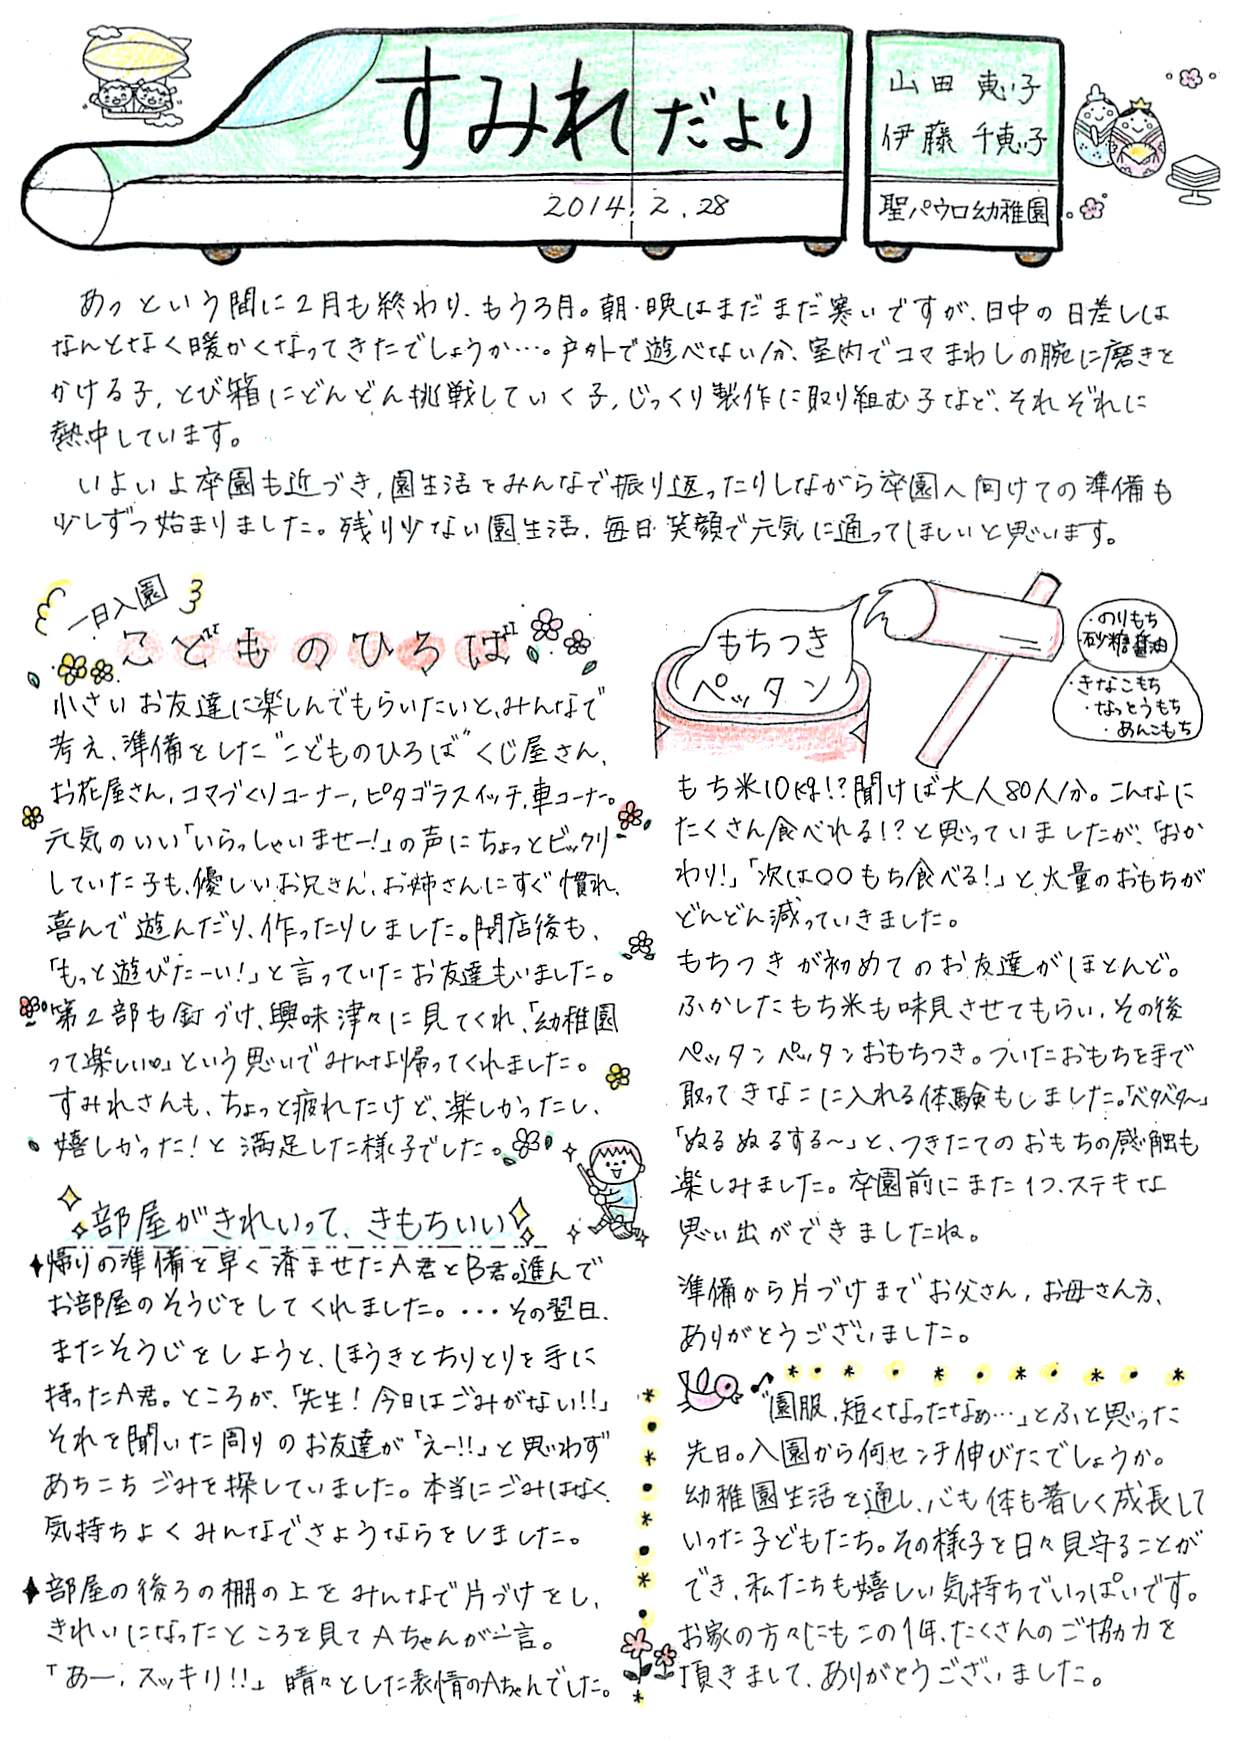 すみれだより
2014. 2. 28
山田 恵子
伊藤 千恵子
聖パウロ幼稚園
あっという間に2月も終わり、もう3月。朝・晩はまだまだ寒いですが、日中の日差しは
なんとなく暖かくなってきたでしょうか…。戸外で遊べない分、室内でコマまわしの腕に磨きを
かける子、とび箱にどんどん挑戦していく子、じっくり製作に取り組む子など、それぞれに
熱中しています。
いよいよ卒園も近づき、園生活をみんなで振り返ったりしながら卒園へ向けての準備も
少しずつ始まりました。残り少ない園生活、毎日笑顔で元気に通ってほしいと思います。
一日入園
こどものひろば
小さいお友達に楽しんでもらいたいと、みんなで
考え、準備をした“こどものひろば”くじ屋さん、
お花屋さん、コマづくりコーナー、ピタゴラスイッチ、車コーナー。
元気のいい「いらっしゃいませー!」の声にちょっとビックリ
していた子も、優しいお兄さん、お姉さんにすぐ慣れ、
喜んで遊んだり、作ったりしました。閉店後も、
「もっと遊びたーい!」と言っていたお友達もいました。
第2部も釘づけ、興味津々に見てくれ、「幼稚園
って楽しい。」という思いでみんな帰ってくれました。
すみれさんも、ちょっと疲れたけど、楽しかったし、
嬉しかった!と満足した様子でした。
部屋がきれいって、きもちいい
帰りの準備を早く済ませたA君とB君。進んで
お部屋のそうじをしてくれました。・・・その翌日、
またそうじをしようと、ほうきとちりとりを手に
持ったA君。ところが、「先生!今日はごみがない!!」
それを聞いた周りのお友達が「えー!!」と思わず
あちこちごみを探していました。本当にごみはなく、
気持ちよくみんなでさようならをしました。
部屋の後ろの棚の上をみんなで片づけをし、
きれいになったところを見てAちゃんが一言。
「あー、スッキリ!!」晴々とした表情のAちゃんでした。
もちつき
ペッタン
・のりもち
・砂糖醤油
・きなこもち
・なっとうもち
・あんこもち
もち米10kg!?聞けば大人80人分。こんなに
たくさん食べれる!?と思っていましたが、「おか
わり!」「次は〇〇もち食べる!」と、大量のおもちが
どんどん減っていきました。
もちつきが初めてのお友達がほとんど。
ふかしたもち米も味見させてもらい、その後
ペッタンペッタンおもちつき。ついたおもちを手で
取ってきなこに入れる体験もしました。「ベタベタ〜」
「ぬるぬるする〜」と、つきたてのおもちの感触も
楽しみました。卒園前にまた1つ、ステキな
思い出ができましたね。
準備から片づけまでお父さん、お母さん方、
ありがとうございました。
“園服、短くなったなぁ…」とふと思った
先日。入園から何センチ伸びたでしょうか。
幼稚園生活を通し、心も体も著しく成長して
いった子どもたち。その様子を日々見守ることが
でき、私たちも嬉しい気持ちでいっぱいです。
お家の方々にもこの1年、たくさんのご協力を
頂きまして、ありがとうございました。